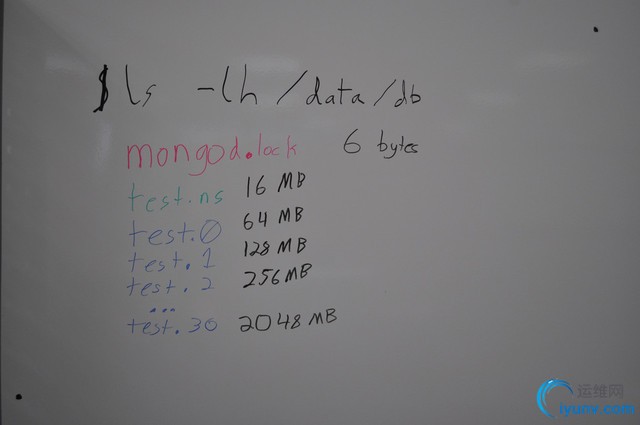 $ls -lh /data/db
mongod.lock 6 bytes
test.ns 16 MB
test.0 64 MB
test.1 128 MB
test.2 256 MB
...
test.30 2048 MB
运维网
iyunv.com